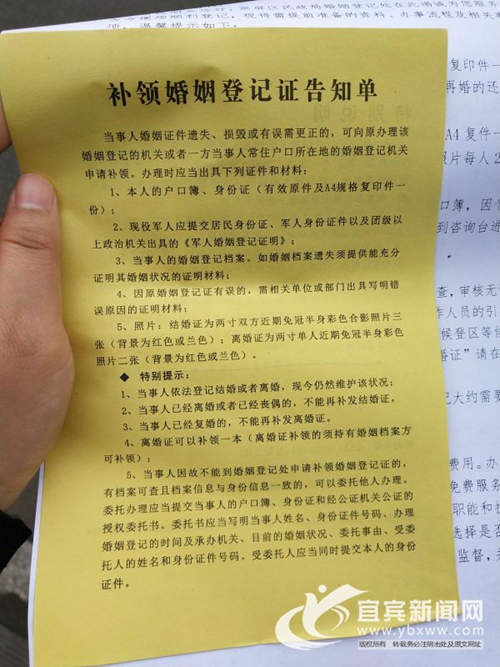 补领婚姻登记证告知单
当事人婚姻证件遗失、损毁或有误需更正的，可向原办理该
婚姻登记的机关或者一方当事人常住户口所在地的婚姻登记机关
申请补领。办理时应当出具下列证件和材料：
1、本人的户口簿、身份证（有效原件及A4规格复印件一
份）；
2、现役军人应提交居民身份证、军人身份证件以及团级以
上政治机关出具的《军人婚姻登记证明》；
3、当事人的婚姻登记档案。如婚姻档案遗失须提供能充分
证明其婚姻状况的证明材料；
4、因原婚姻登记证有误的，需相关单位或部门出具写明错
误原因的证明材料；
5、照片：结婚证为两寸双方近期免冠半身彩色合影照片三
张（背景为红色或兰色）；离婚证为两寸单人近期免冠半身彩色
照片二张（背景为红色或兰色）。
◆ 特别提示：
1、当事人依法登记结婚或者离婚，现今仍然维护该状况；
2、当事人已经离婚或者已经丧偶的，不能再补发结婚证。
3、当事人已经复婚的，不能再补发离婚证。
4、离婚证可以补领一本（离婚证补领的须持有婚姻档案方
可补领）；
5、当事人因故不能到婚姻登记处申请补领婚姻登记证的，
有档案可查且档案信息与身份信息一致的，可以委托他人办理。
委托办理应当提交当事人的户口簿、身份证和经公证机关公证的
授权委托书。委托书应当写明当事人姓名、身份证件号码、办理
婚姻登记的时间及承办机关、目前的婚姻状况、委托事由、受委
托人的姓名和身份证件号码。受委托人应当同时提交本人的身份
证件。
复印件一
再婚的还
A4复件一
照片每人2
口簿，因个
到咨询台进
查，审核无
作人员的引
候登区等候
婚证”请在
记大约需要
费用。办
免费服务
职能和
选择是否
监督，
宜宾新闻网
www.ybxww.com
版权所有 转载务必注明出处及原文网址